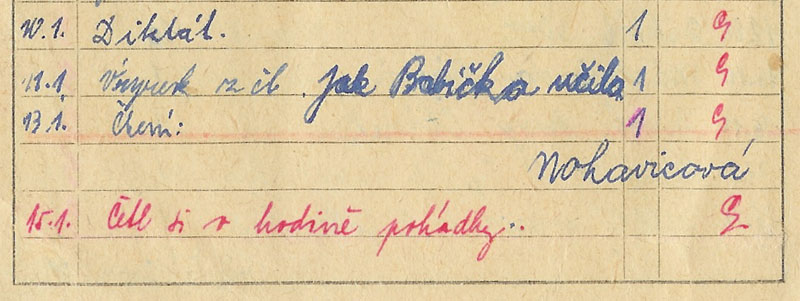 10.1. Diktát. 1 G
11.1 Výcvik z čl. Jak Babička učila 1 G
13.1. Čtení: 1 G
Nohavicová
15.1. Četl si v hodině pohádky.. G